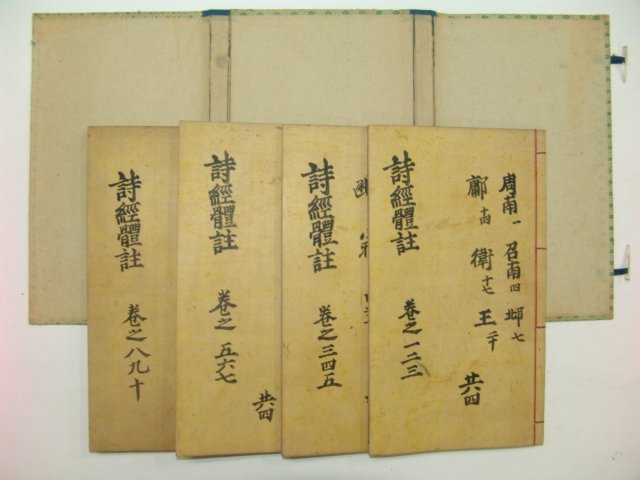 周南一 召南四 邶七
鄘十四 衛十七 王二十
詩經體註 卷之一二三
共四
詩經體註 卷之三四五
詩經體註 卷之五六七
共四
詩經體註 卷之八九十